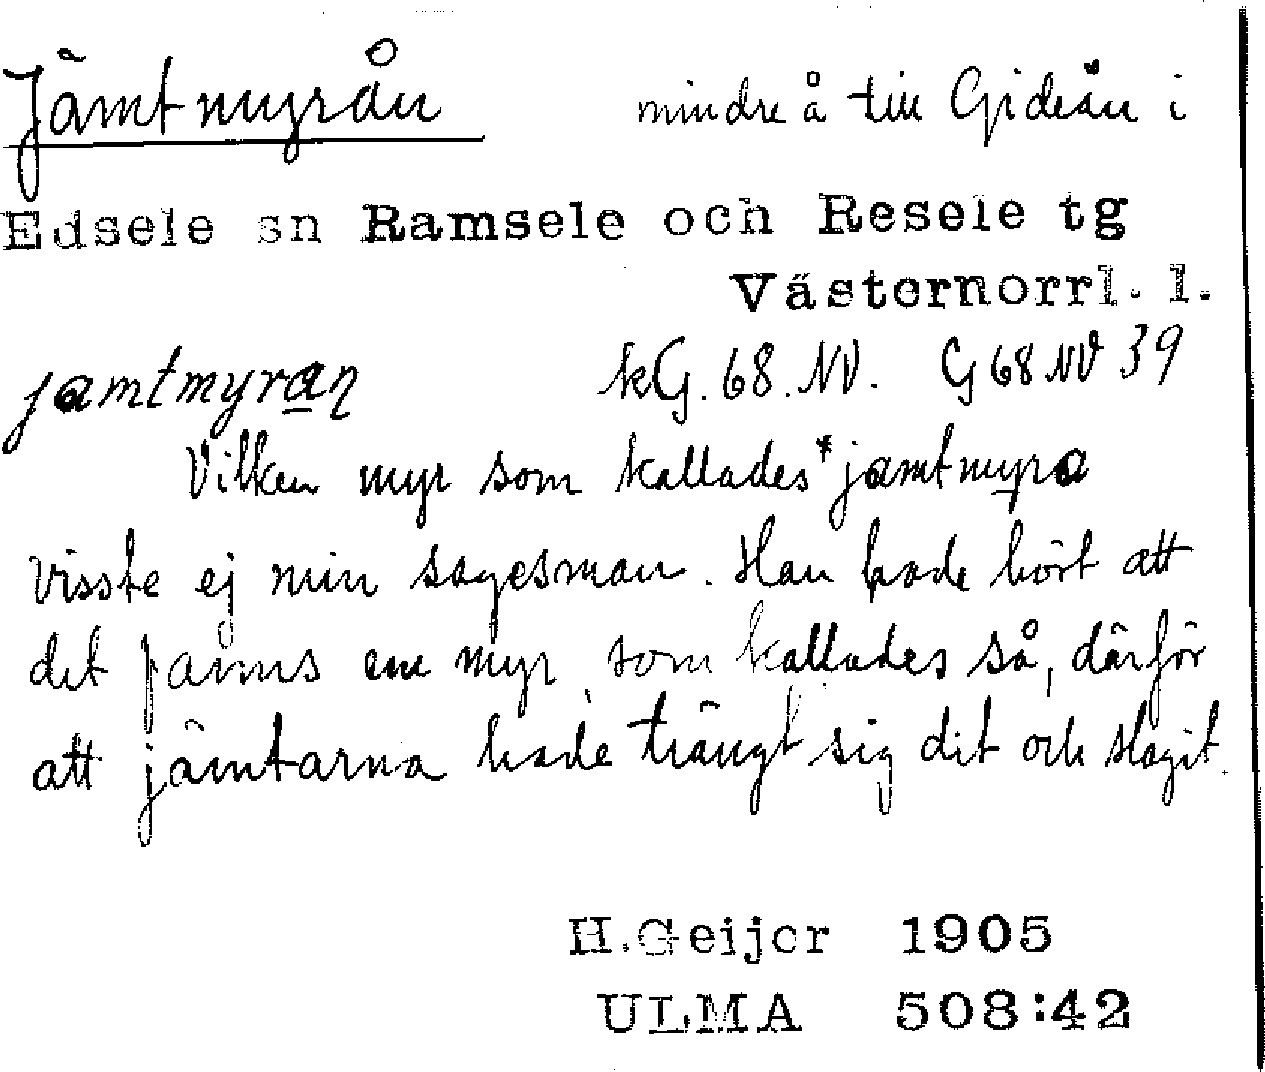 Jämtmyrån mindre å till Gideån i
Edsele sn Ramsele och Resele tg
Västernorrl. l.
jamtmyran kG. 68. NV. G 68 NV 39
Vilken myr som kallades *jamtmyra
visste ej min sagesman. Han hade hört att
det fanns en myr, som kallades så, därför
att jämtarna hade trängt sig dit och slagit.
H.Geijer 1905
ULMA 508:42